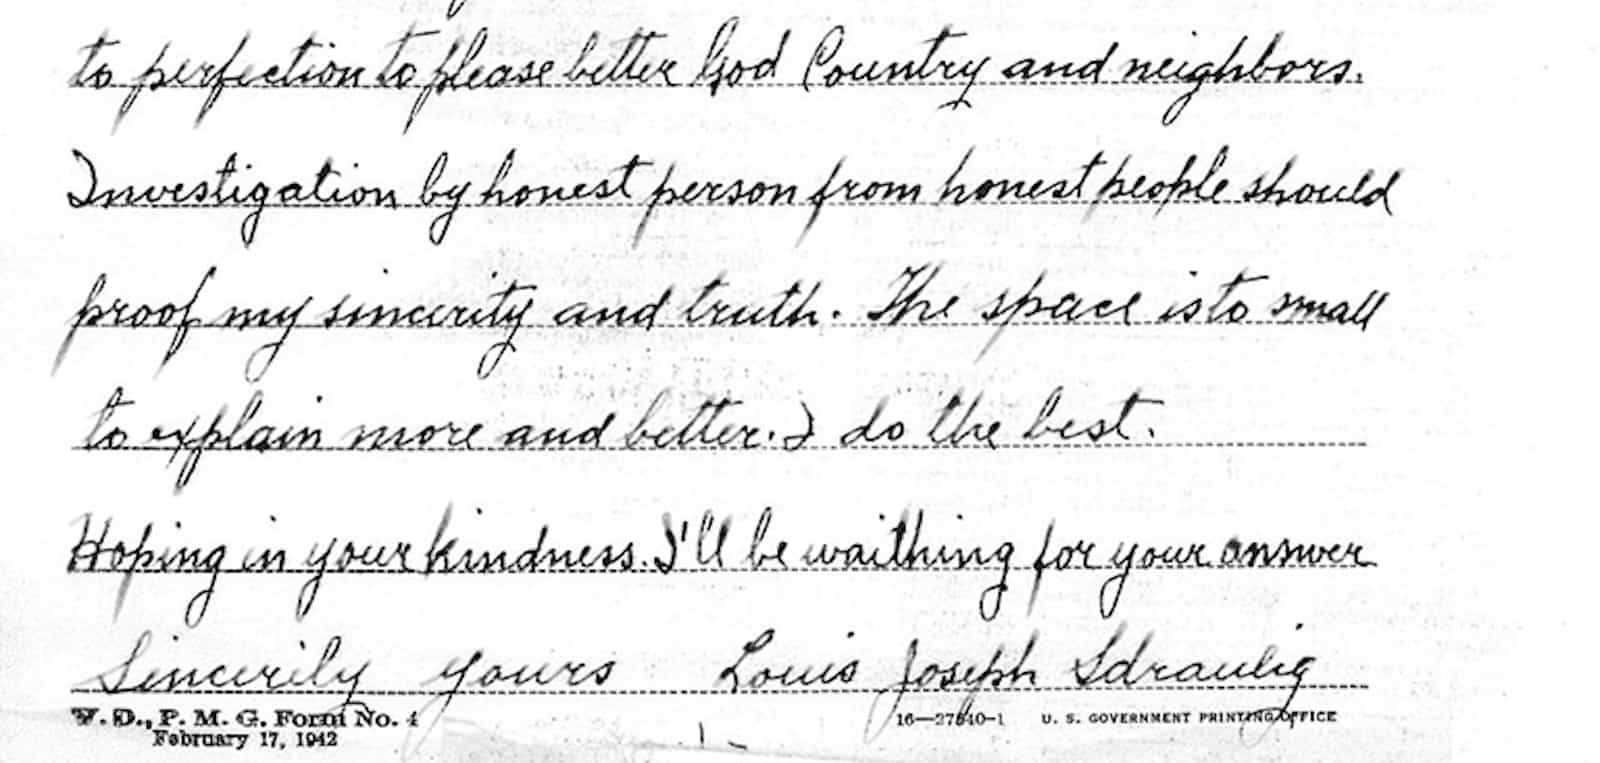 to perfection to please better God Country and neighbors.
Investigation by honest person from honest people should
proof my sincerity and truth. The space is to small
to explain more and better. I do the best.
Hoping in your kindness. I'll be waithing for your answer
Sincerily yours Louis Joseph Sdraulig
W. D., P. M. G. Form No. 4 16—27640-1 U. S. GOVERNMENT PRINTING OFFICE
February 17, 1942